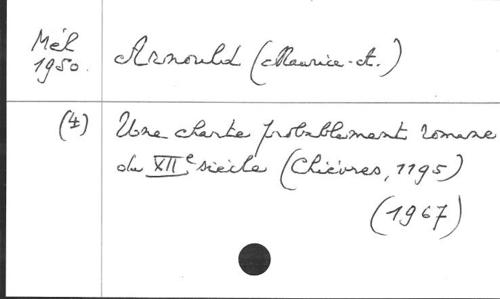 Mél
1950.
Arnould (Maurice-A.)
(4)
Une charte probablement romane
du XIIe siècle (Chièvres, 1195)
(1967)